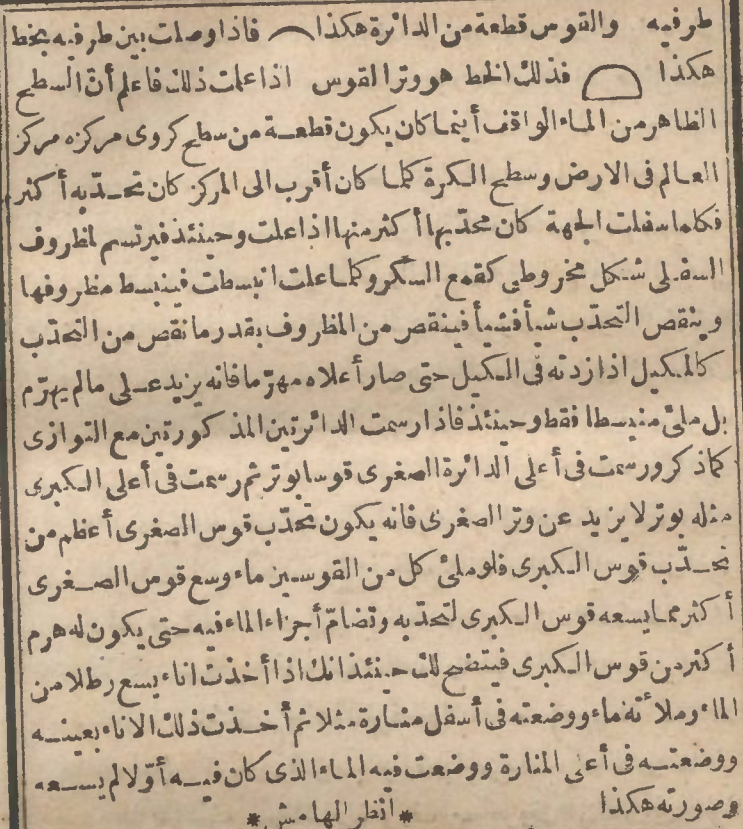 طرفيه والقوس قطعة من الدائرة هكذا فاذا وصلت بين طرفيه بخط
هكذا فذلك الخط هو وتر القوس اذا علمت ذلك فاعلم أن السطح
الظاهر من الماء الواقف أينما كان يكون قطعة من سطح كروى مركزه مركز
العالم فى الارض وسطح الكرة كلما كان أقرب الى المركز كان تحدّبه أكثر
فكلما سفلت الجهة كان محدّبها أكثر منها اذا علت وحينئذ فيرتسم لمظروف
السفلى شكل مخروطى كقمع السكر وكلما علت انبسطت فينبسط مظروفها
وينقص التحدّب شيأ فشيأ فينقص من المظروف بقدر ما نقص من التحدّب
كالمكيل اذا زدته فى المكيل حتى صار أعلاه مهرّما فانه يزيد على مالم يهرّم
بل ملئ منبسطا فقط وحينئذ فاذا رسمت الدائرتين المذكورتين مع التوازى
كما ذكر ورسمت فى أعلى الدائرة الصغرى قوسا بوتر ثم رسمت فى أعلى الكبرى
مثله بوتر لا يزيد عن وتر الصغرى فانه يكون تحدّب قوس الصغرى أعظم من
تحدّب قوس الكبرى فلو ملئ كل من القوسين ماء وسع قوس الصغرى
أكثر مما يسعه قوس الكبرى لتحدّبه وتضامّ أجزاء الماء فيه حتى يكون له هرم
أكثر من قوس الكبرى فيتضح لك حينئذ انك اذا أخذت اناء يسع رطلا من
الماء وملأته ماء ووضعته فى أسفل منارة مثلا ثم أخذت ذلك الاناء بعينه
ووضعته فى أعلى المنارة ووضعت فيه الماء الذى كان فيه أوّلا لم يسعه
وصورته هكذا *انظر الهامش*